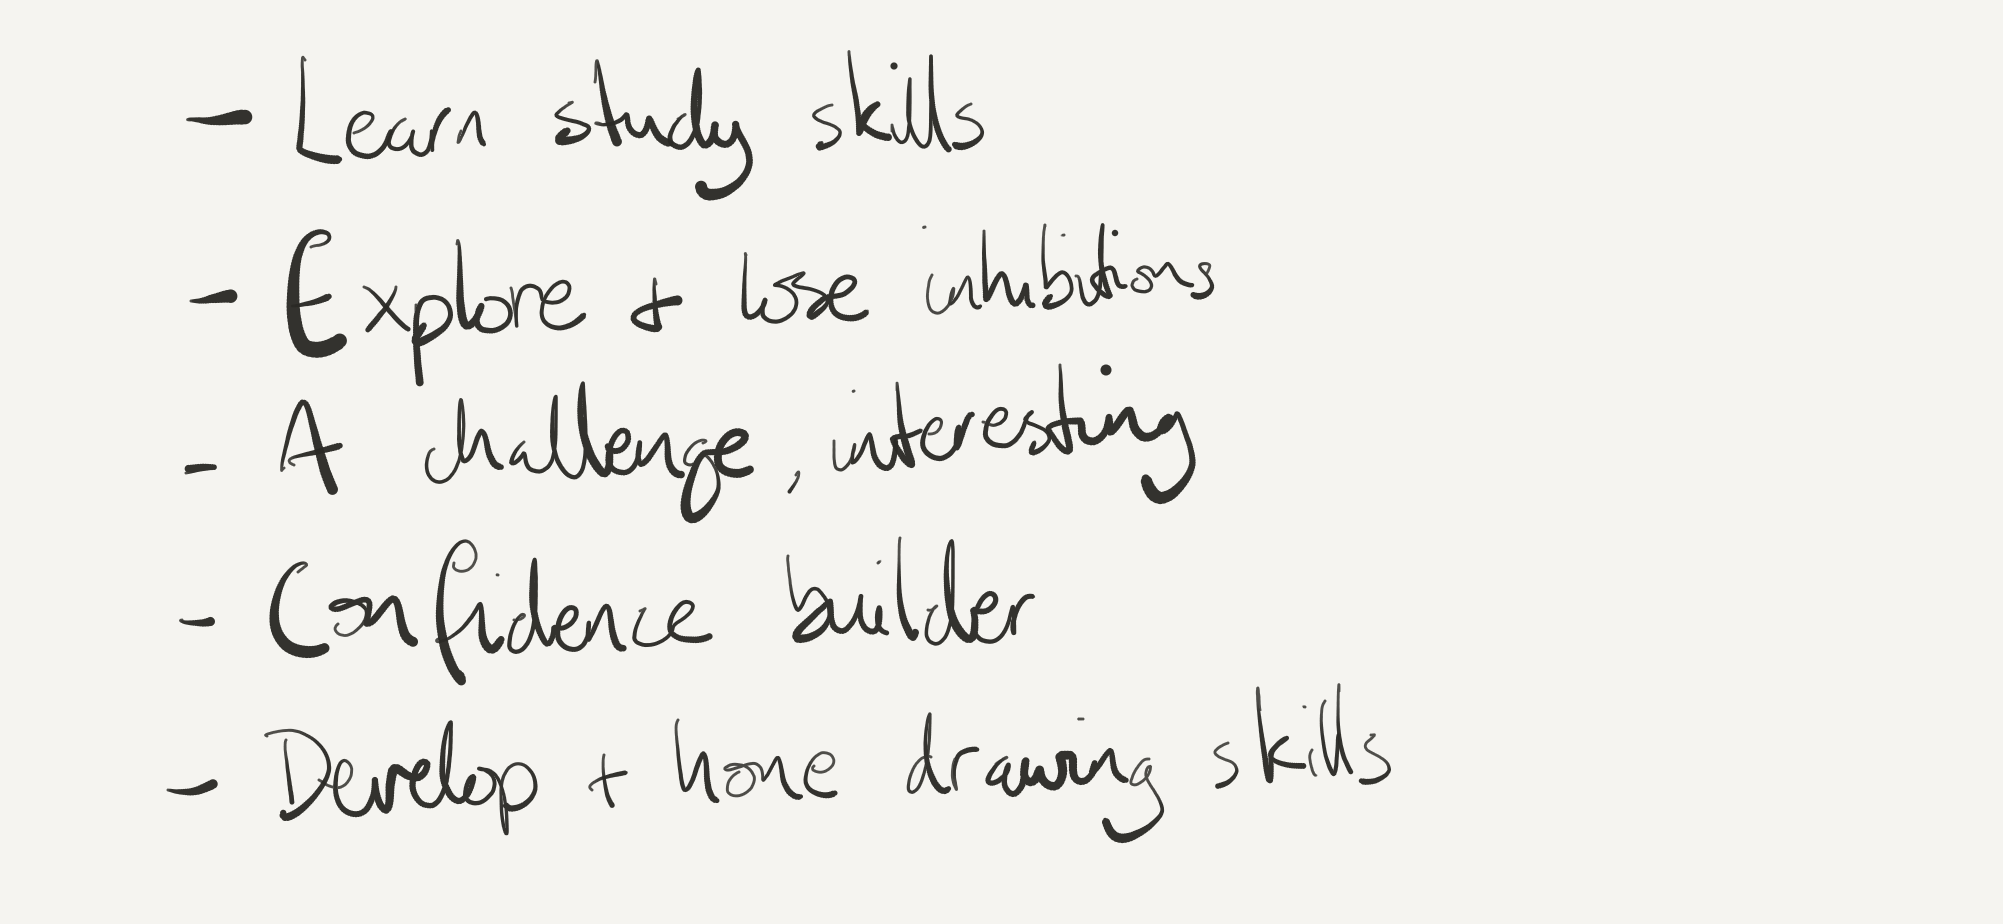 - Learn study skills
- Explore + lose inhibitions
- A challenge, interesting
- Confidence builder
- Develop + hone drawing skills